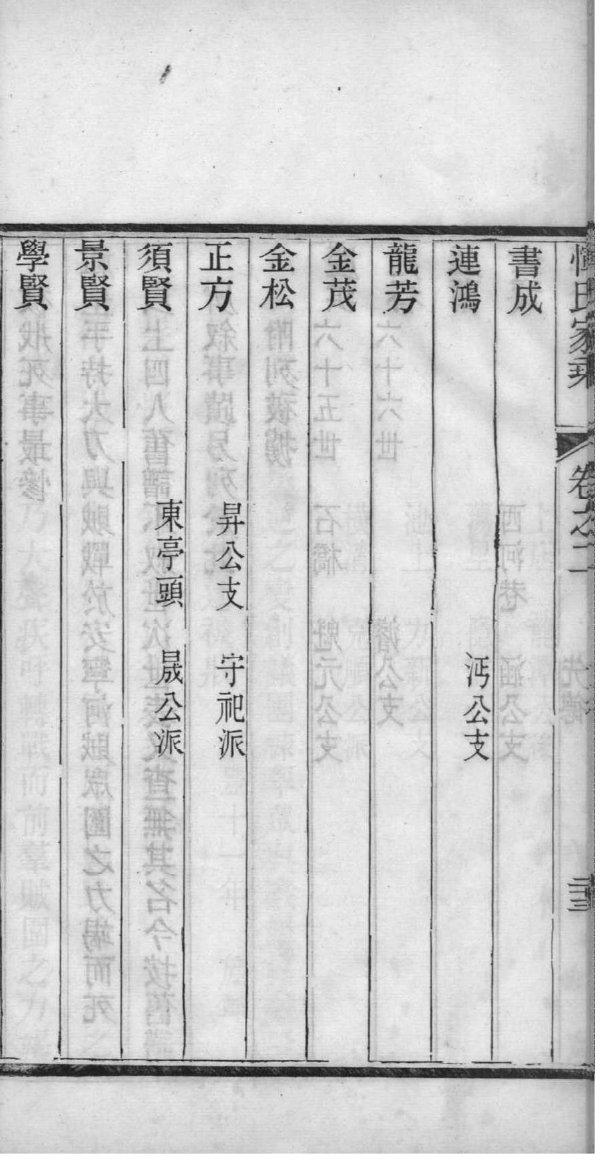 氏家乘 卷之二
書成
連鴻 沔公支
龍芳
金茂
金松
正方 昇公支 守祀派
須賢 東亭頭 晟公派
景賢
學賢